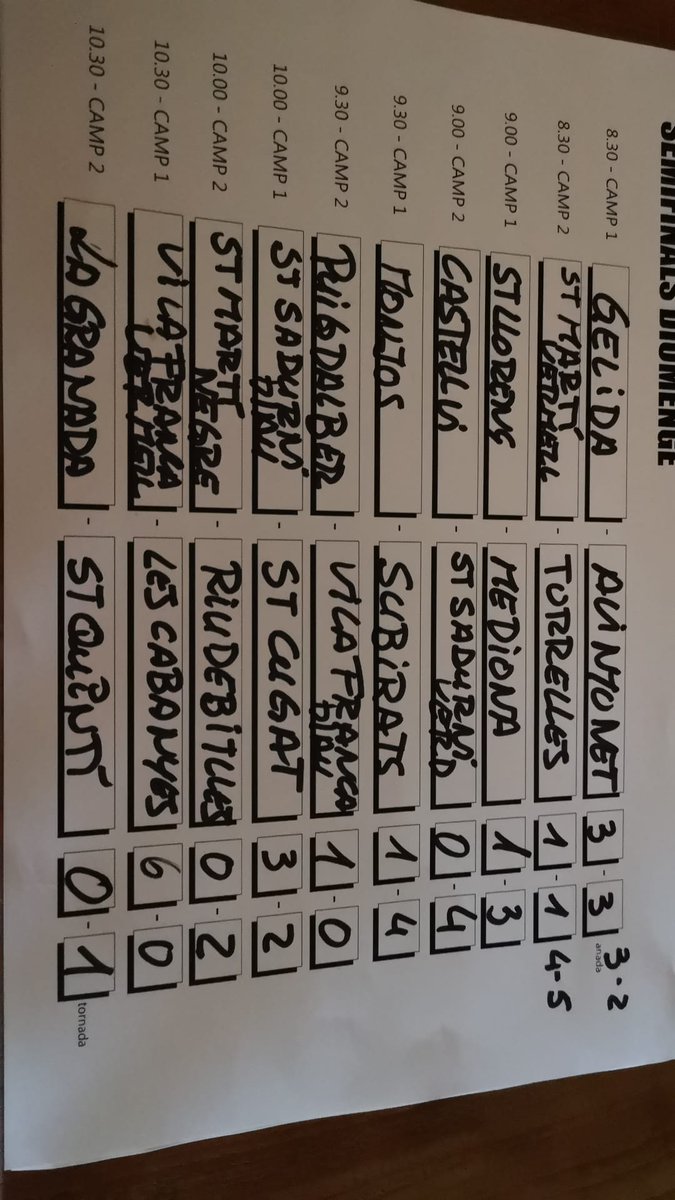 SEMIFINALS DIUMENGE
8.30 - CAMP 1 GELIDA - AVINYONET 3 - 3 3-2
anada
8.30 - CAMP 2 ST MARTÍ VERMELL - TORRELLES 1 - 1 4-5
9.00 - CAMP 1 ST LLORENS - MEDIONA 1 - 3
9.00 - CAMP 2 CASTELLVI - ST SADURNÍ VERD 0 - 4
9.30 - CAMP 1 MONJOS - SUBIRATS 1 - 4
9.30 - CAMP 2 PUIGDALBER - VILAFRANCA BLAU 1 - 0
10.00 - CAMP 1 ST SADURNÍ BLAU - ST CUGAT 3 - 2
10.00 - CAMP 2 ST MARTÍ NEGRE - RIUDEBITLLES 0 - 2
10.30 - CAMP 1 VILAFRANCA VERMELL - LES CABANYES 6 - 0
10.30 - CAMP 2 LA GRANADA - ST QUINTÍ 0 - 1
tornada